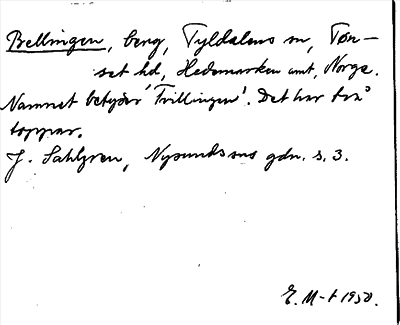 Bellingen, berg, Tyldalens sn, Tøn-
set hd, Hedemarken amt, Norge.
Namnet betyder 'Tvillingen'. Det har två
toppar.
J. Sahlgren, Nysunds sns gdn. s. 3.
E. M-t 1950.